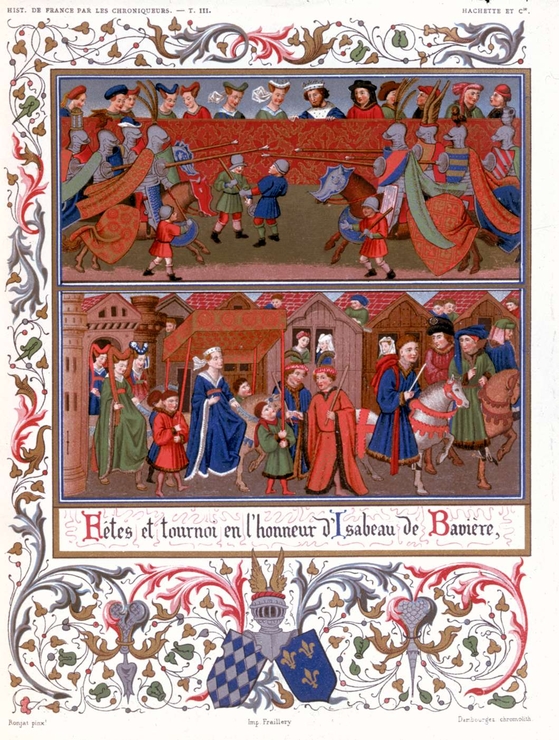 HIST. DE FRANCE PAR LES CHRONIQUEURS. — T. III.
HACHETTE ET Cie.
Fêtes et tournoi en l'honneur d'Isabeau de Bavière,
Ronjat pinxt
Imp. Fraillery
Dambourgez chromolith.